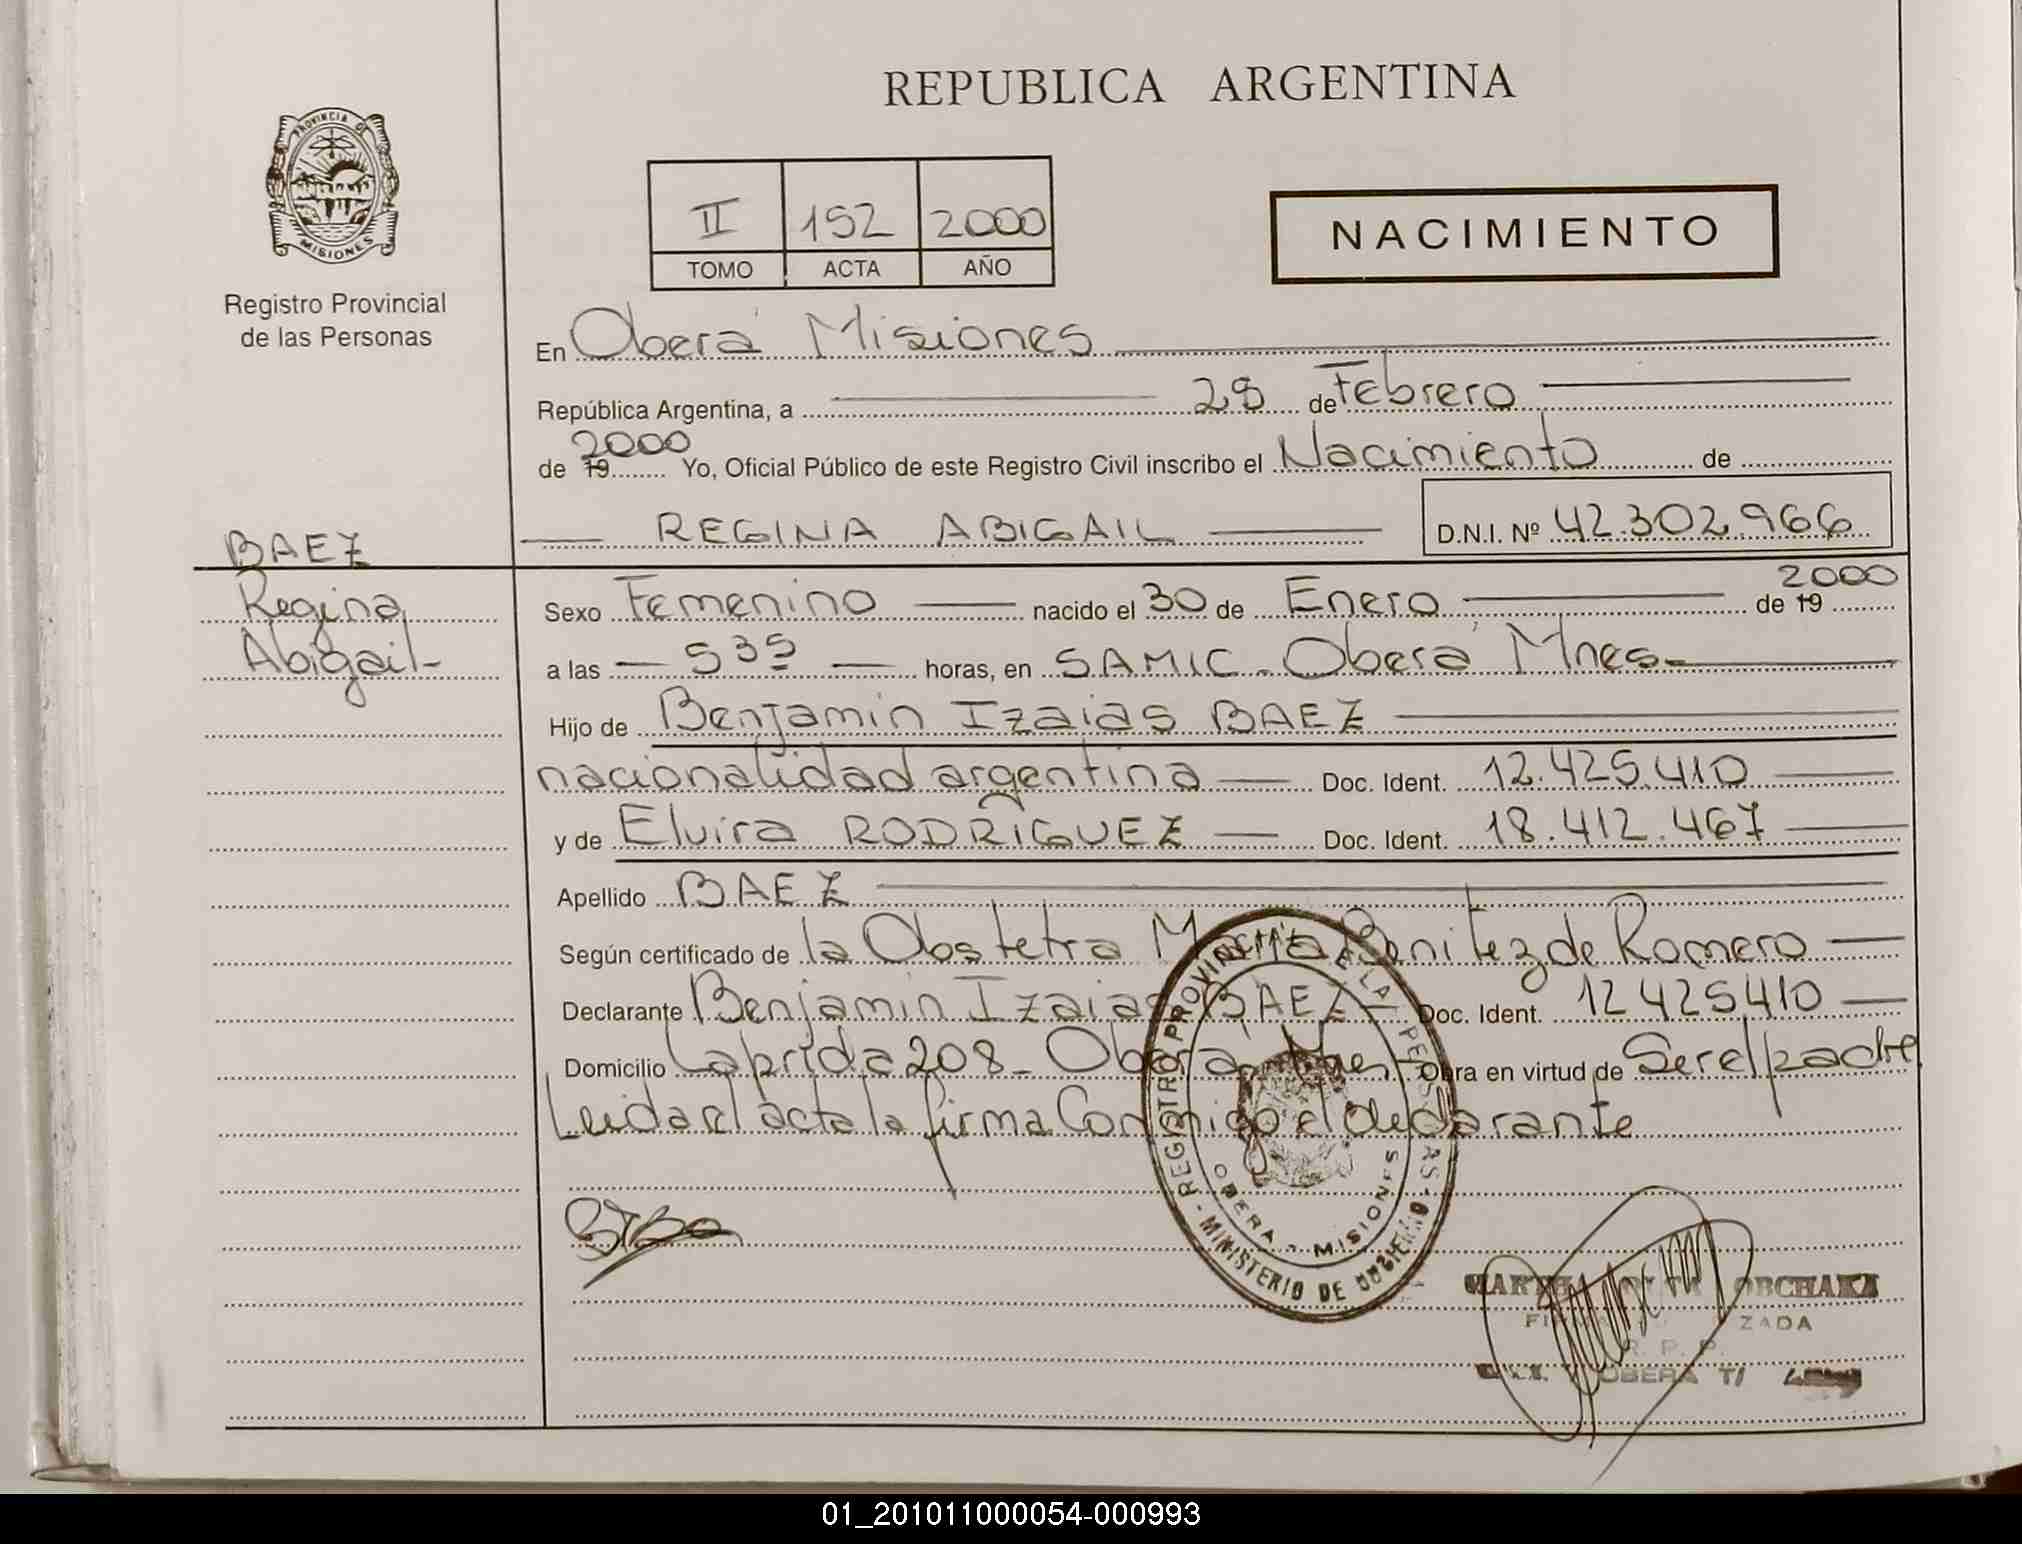 REPUBLICA ARGENTINA
PROVINCIA DE
MISIONES
Registro Provincial
de las Personas
II 152 2000
TOMO ACTA AÑO
NACIMIENTO
En Oberá Misiones
República Argentina, a 28 de Febrero
de 19 2000 Yo, Oficial Público de este Registro Civil inscribo el Nacimiento de
REGINA ABIGAIL D.N.I. Nº 42.302.966
BAEZ
Regina
Abigail
Sexo Femenino nacido el 30 de Enero de 19 2000
a las 5 35 horas, en SAMIC - Oberá Mnes
Hijo de Benjamin Izaias BAEZ
nacionalidad argentina Doc. Ident. 12.425.410
y de Elvira RODRIGUEZ Doc. Ident. 18.412.467
Apellido BAEZ
Según certificado de la Obstetra Benitez de Romero
Declarante Benjamin Izaias BAEZ Doc. Ident. 12425410
Domicilio Laprida 208 - Oberá Mnes Obra en virtud de Ser el padre
Leida el acta la firma Conmigo el declarante
REGISTRO PROVINCIAL DE LAS PERSONAS
- MINISTERIO DE GOBIERNO
OBERA - MISIONES
R. P. P.
OBERA T/
01_201011000054-000993